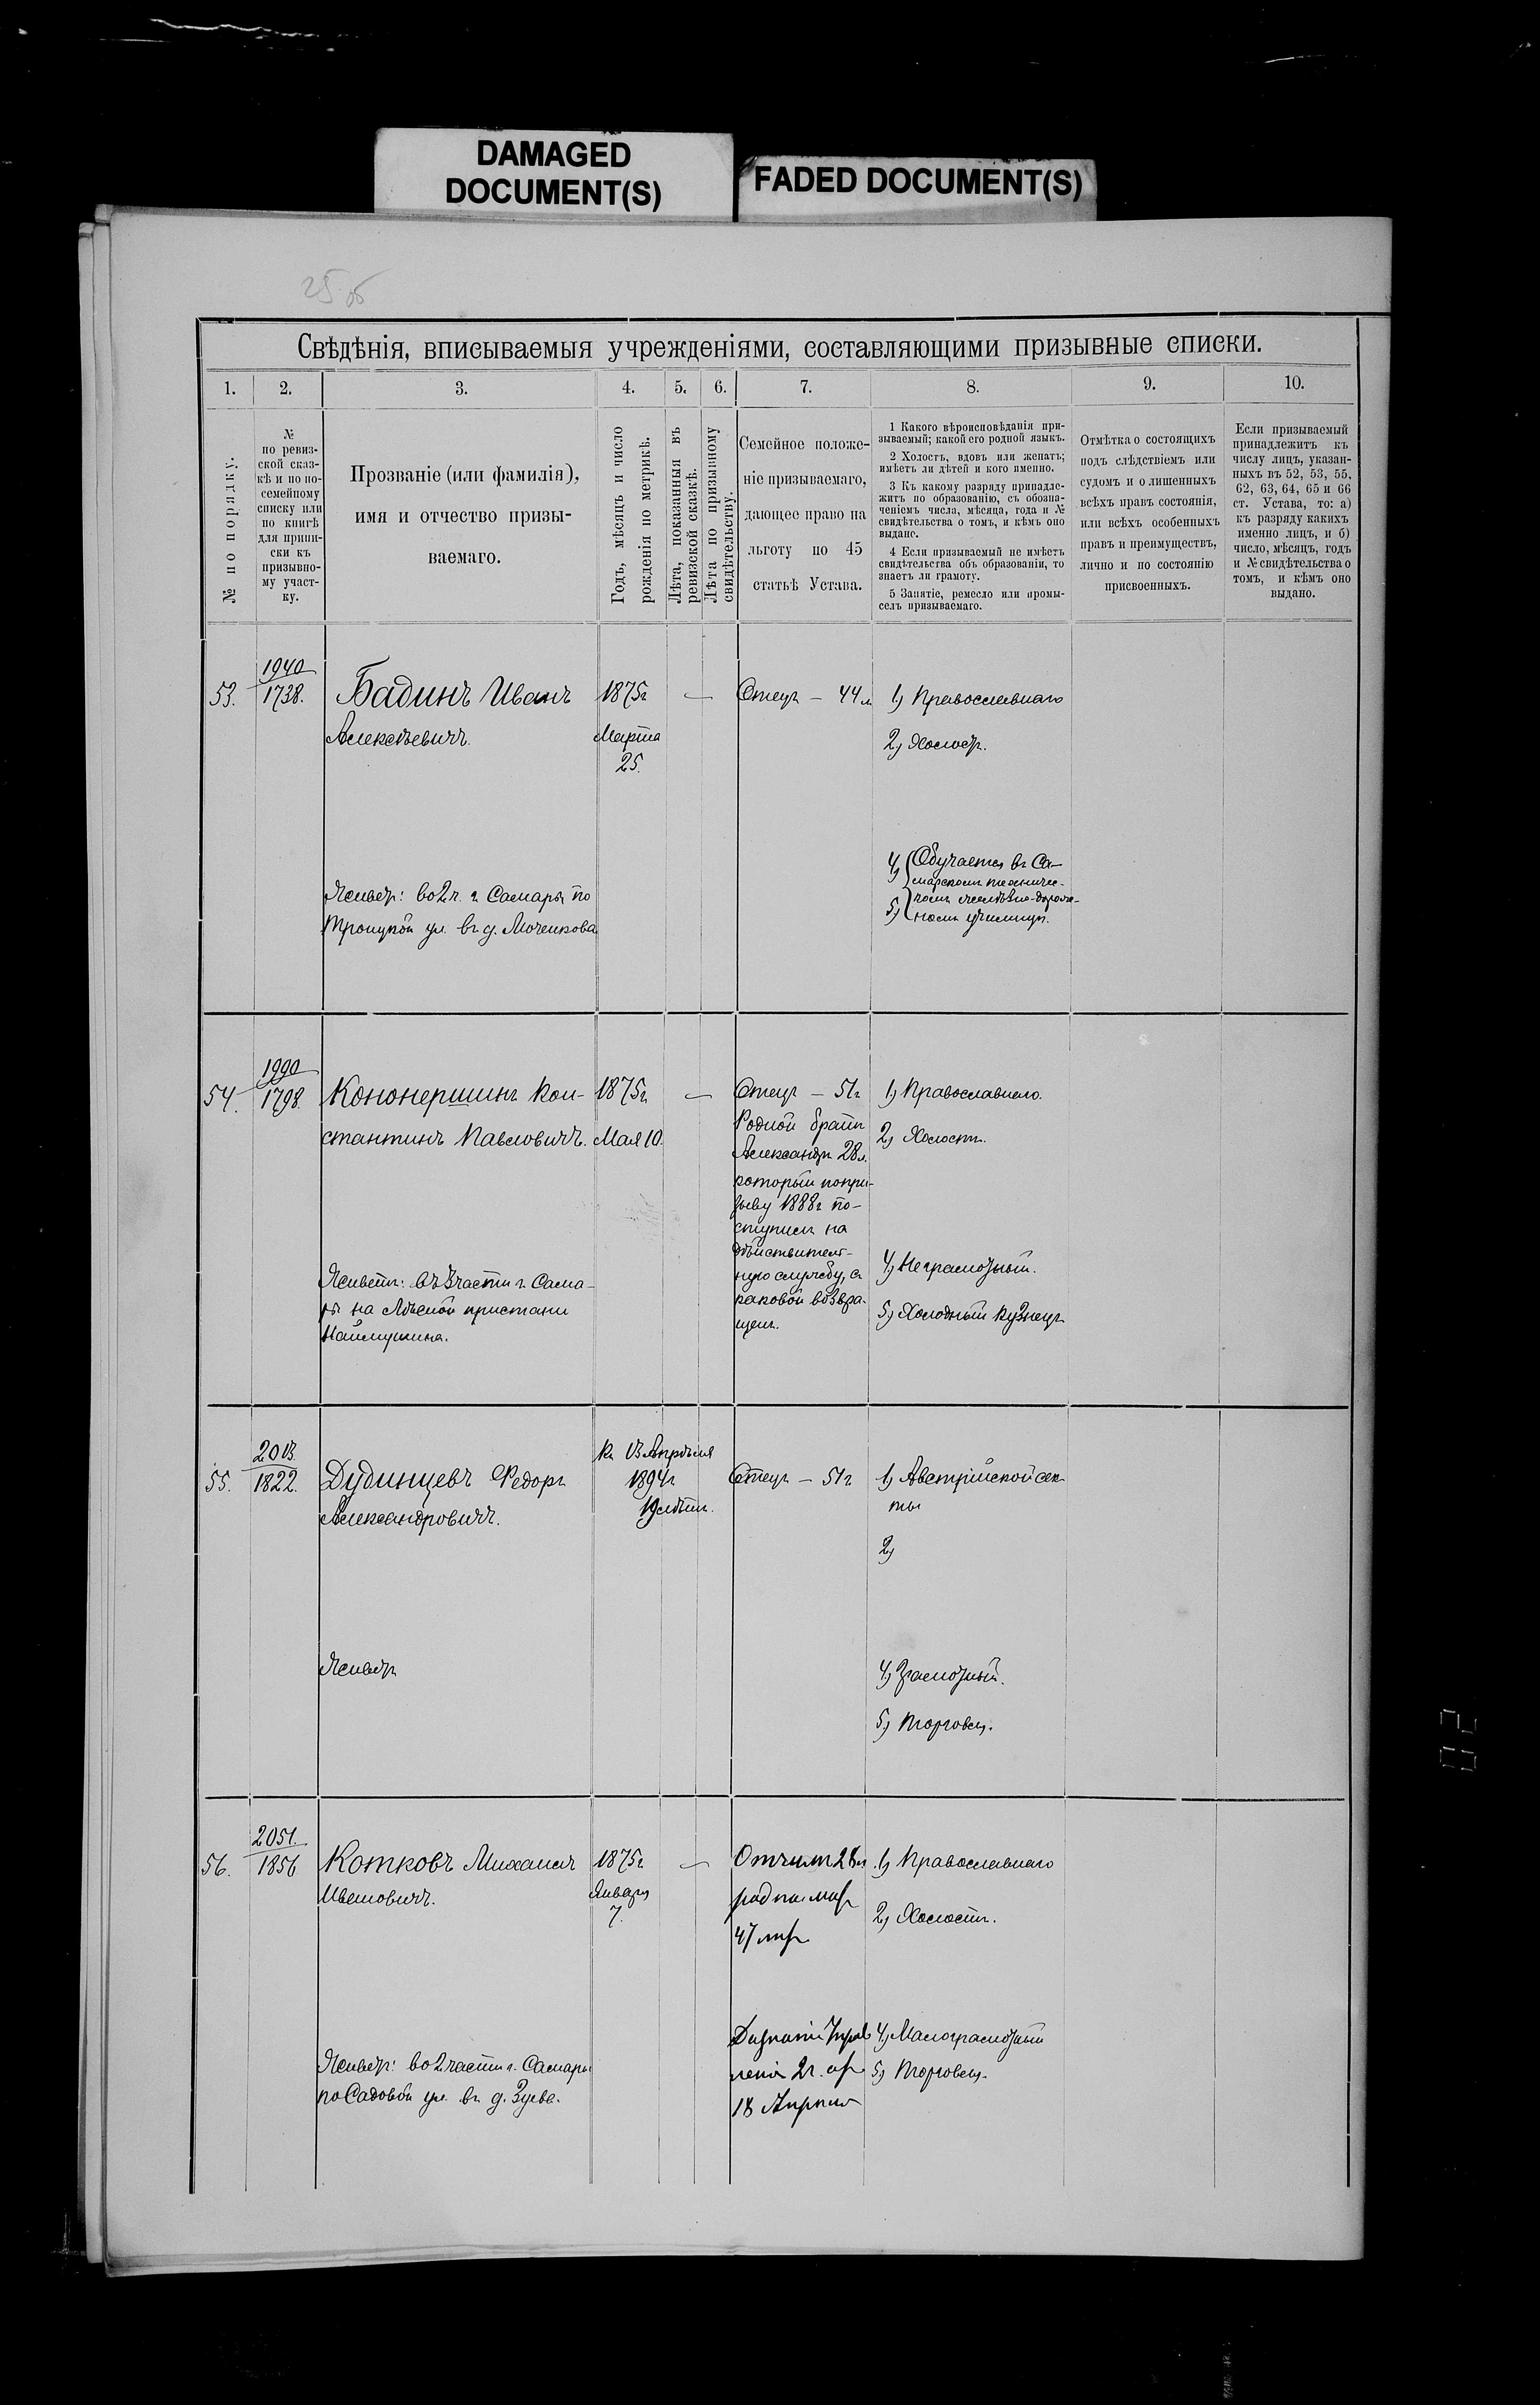 DAMAGED
DOCUMENT(S)
FADED DOCUMENT(S)
25 об
Свѣдѣнія, вписываемыя учрежденіями, составляющими призывные списки.
1.
2.
3.
4.
5.
6.
7.
8.
9.
10.
№ по порядку.
№
по ревиз-
ской сказ-
кѣ и по по-
семейному
списку или
по книгѣ
для припи-
ски къ
призывно-
му участ-
ку.
Прозваніе (или фамилія),
имя и отчество призы-
ваемаго.
Годъ, мѣсяцъ и число
рожденія по метрикѣ.
Лѣта, показанныя въ
ревизской сказкѣ.
Лѣта по призывному
свидѣтельству.
Семейное положе-
ніе призываемаго,
дающее право на
льготу по 45
статьѣ Устава.
1 Какого вѣроисповѣданія при-
зываемый; какой его родной языкъ.
2 Холостъ, вдовъ или женатъ;
имѣетъ ли дѣтей и кого именно.
3 Къ какому разряду принадле-
житъ по образованію, съ обозна-
ченіемъ числа, мѣсяца, года и №
свидѣтельства о томъ, и кѣмъ оно
выдано.
4 Если призываемый не имѣетъ
свидѣтельства объ образованіи, то
знаетъ ли грамоту.
5 Занятіе, ремесло или промы-
селъ призываемаго.
Отмѣтка о состоящихъ
подъ слѣдствіемъ или
судомъ и о лишенныхъ
всѣхъ правъ состоянія,
или всѣхъ особенныхъ
правъ и преимуществъ,
лично и по состоянію
присвоенныхъ.
Если призываемый
принадлежитъ къ
числу лицъ, указан-
ныхъ въ 52, 53, 55,
62, 63, 64, 65 и 66
ст. Устава, то: а)
къ разряду какихъ
именно лицъ, и б)
число, мѣсяцъ, годъ
и № свидѣтельства о
томъ, и кѣмъ оно
выдано.
53.
1940
1738.
Бадинъ Иванъ
Алексѣевичъ.
1875г
Марта
25.
—
Отецъ – 44 л
1) Православнаго
2) Холостъ.
4) Обучается въ Са-
марскомъ техничес-
5) комъ желѣзно-дорож-
номъ училищѣ.
Живетъ: во 2 ч. г. Самары по
Троицкой ул. въ д. Моченкова
54.
1990
1798.
Кононершинъ Кон-
стантинъ Павловичъ.
1875г.
Мая 10.
—
Отецъ – 51г
Родной братъ
Александръ 28л.
который по при-
зыву 1888г по-
ступилъ на
дѣйствитель-
ную службу, съ
каковой возвра-
щенъ.
1) Православнаго.
2) Холостъ.
4) Неграмотный.
5) Холодный кузнецъ
Живетъ: въ 3 части г. Сама-
ры на Лѣсной пристани
Наймушина.
55.
2013.
1822.
Дудинцевъ Федоръ
Александровичъ.
Къ 13 Апрѣля
1894г
19 лѣтъ.
Отецъ – 51г
1) Австрійской сек-
ты
2)
4) Грамотный.
5) Торговец.
Живетъ
56.
2051.
1856
Котковъ Михаилъ
Ивановичъ.
1875г.
Января
7.
—
Отчим 28 л.
родная мать
47 лѣтъ
1) Православнаго
2) Холостъ.
4) Малограмотный
5) Торговец.
Дознаніе Управ
ленія 2 ч. от
18 Апрѣля
Живетъ: во 2 части г. Самары
по Садовой ул. въ д. Зуева.
02